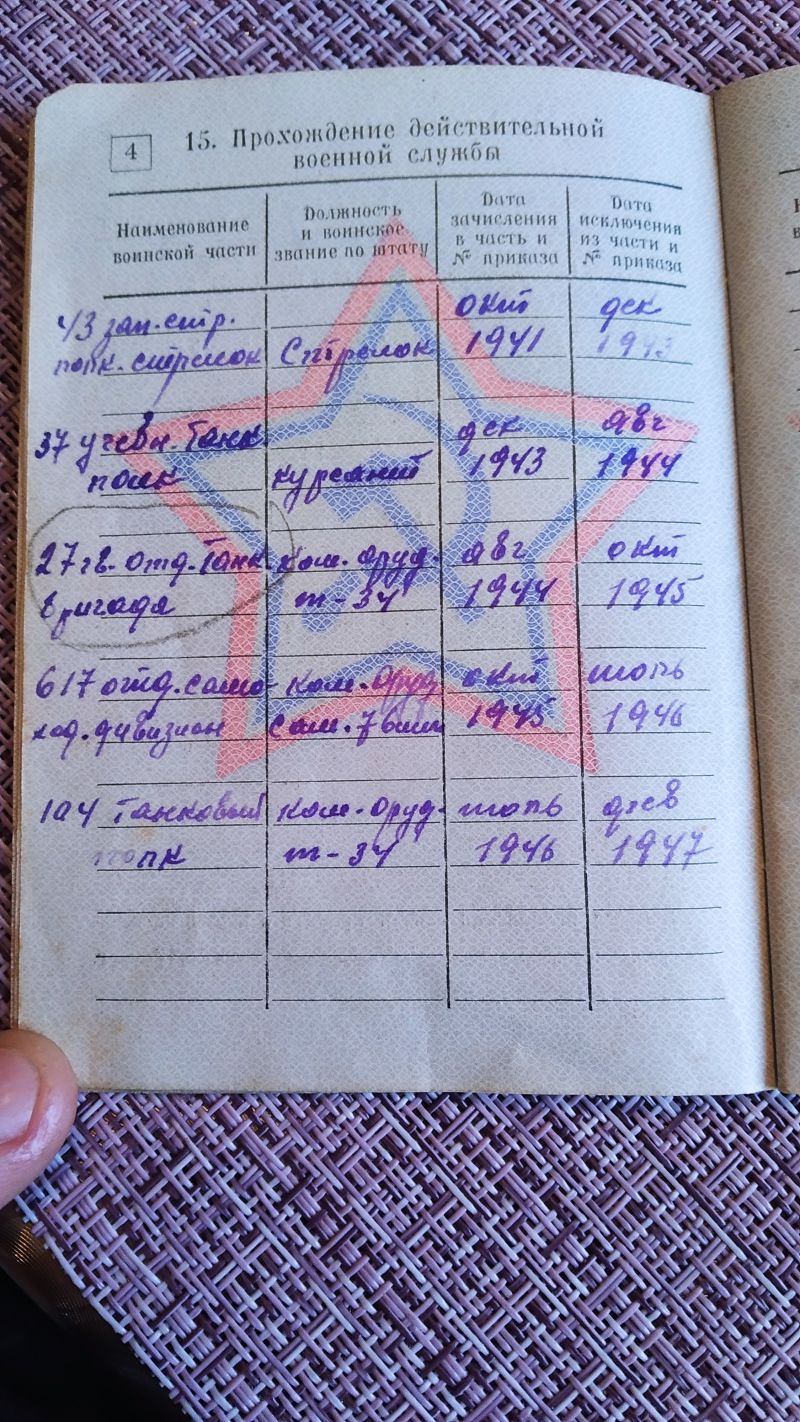 4
15. Прохождение действительной
военной службы
Наименование
воинской части
Должность
и воинское
звание по штату
Дата
зачисления
в часть и
№ приказа
Дата
исключения
из части и
№ приказа
43 зап. стр. окт дек
полк. стрелок Стрелок 1941 1943
37 учебн. Танк дек авг
полк курсант 1943 1944
27 гв. отд. Танк ком. оруд. авг окт
бригада т-34 1944 1945
617 отд. само- ком. оруд. окт июль
ход. дивизион сам. 76мм 1945 1946
104 Танковый ком. оруд. июль
полк т-34 1946 1947